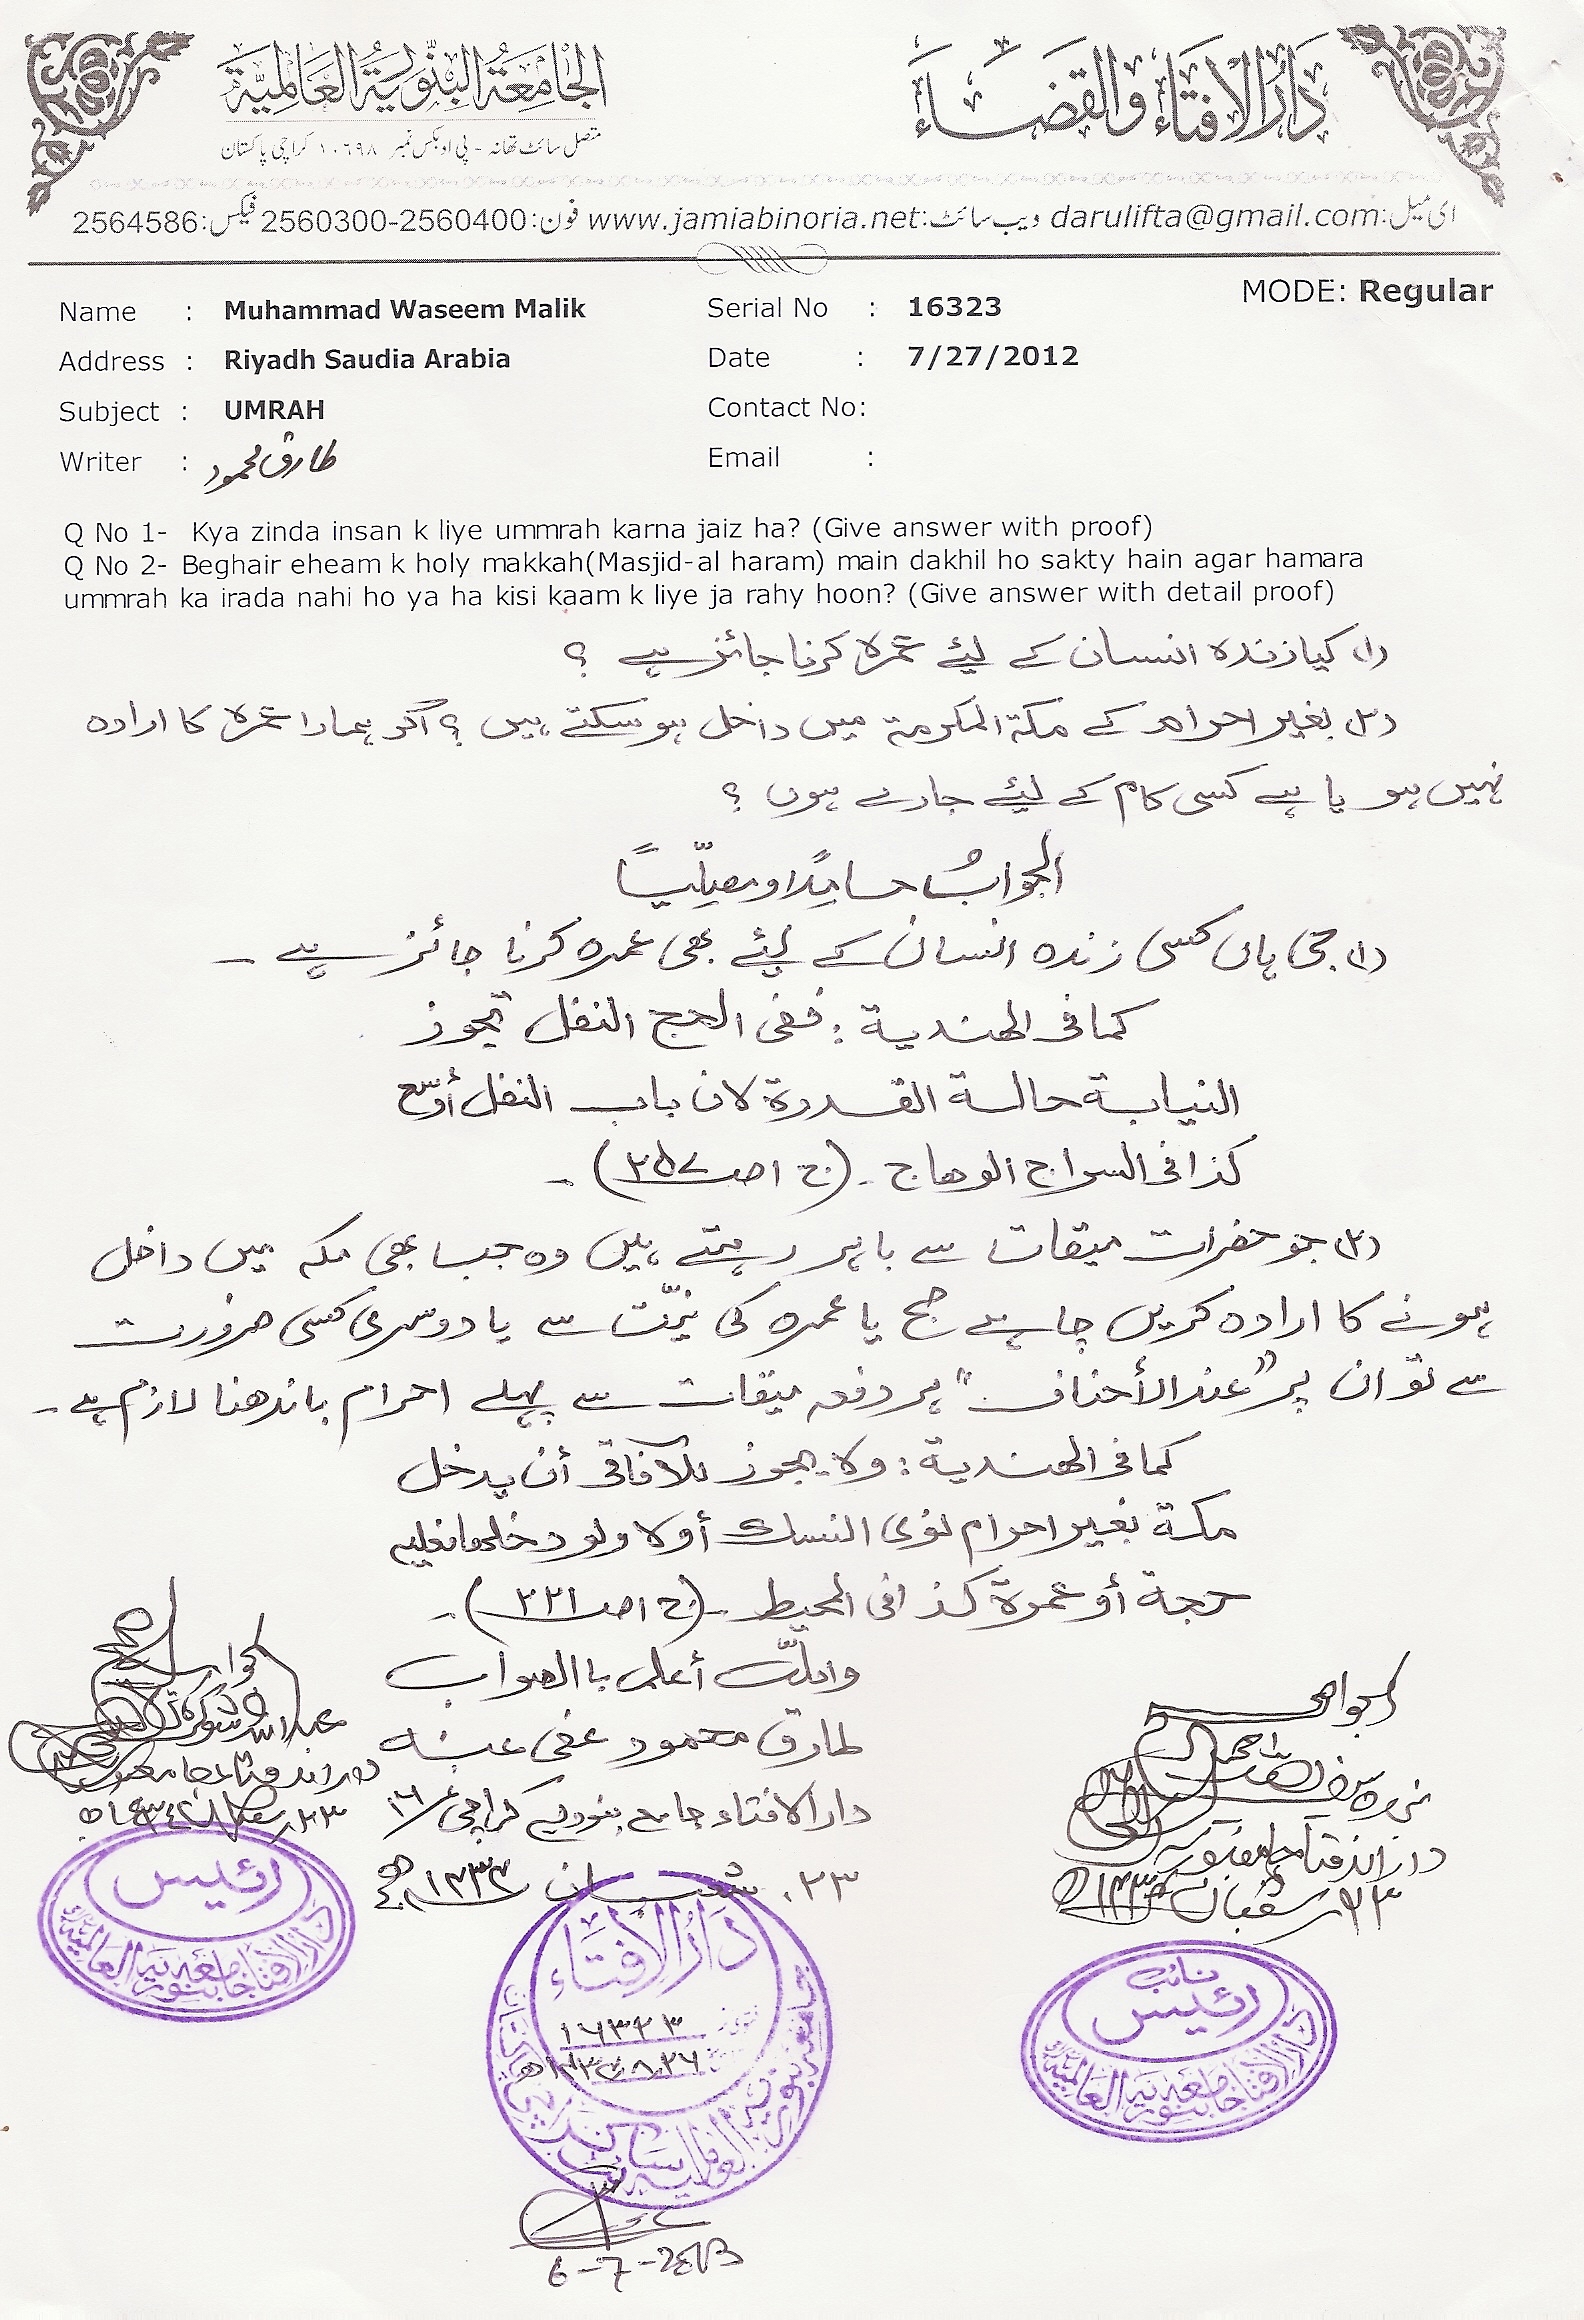 دَارُالافتَاء وَالقَضَاء
الجَامِعَةُ البِنّورِيَّةُ العَالَمِيَّة
متصل سائٹ تھانہ - پی او بکس نمبر ۱۰۶۹۸ کراچی پاکستان
ای میل:darulifta@gmail.com ویب سائٹ:www.jamiabinoria.net فون:2560300-2560400 فیکس:2564586
MODE: Regular
Name : Muhammad Waseem Malik Serial No : 16323
Address : Riyadh Saudia Arabia Date : 7/27/2012
Subject : UMRAH Contact No:
Writer : طارق محمود Email :
Q No 1- Kya zinda insan k liye ummrah karna jaiz ha? (Give answer with proof)
Q No 2- Beghair eheam k holy makkah(Masjid-al haram) main dakhil ho sakty hain agar hamara
ummrah ka irada nahi ho ya ha kisi kaam k liye ja rahy hoon? (Give answer with detail proof)
(۱) کیا زندہ انسان کے لیئے عمرہ کرنا جائز ہے ؟
(۲) بغیر احرام کے مکۃ المکرمۃ میں داخل ہو سکتے ہیں ؟ اگر ہمارا عمرہ کا ارادہ
نہیں ہو یا ہے کسی کام کے لیئے جارہے ہوں ؟
الجوابُ حامِدًا و مصلّیًا
(۱) جی ہاں کسی زندہ انسان کے لیئے بھی عمرہ کرنا جائز ہے ۔
کما فی الھندیة : ففی الحج النفل تجوز
النیابة حالة القدرة لان باب النفل أوسع
کذا فی السراج الوھاج ۔ (ج ۱ صـ ۲۵۷) ۔
(۲) جو حضرات میقات سے باہر رہتے ہیں وہ جب بھی مکہ میں داخل
ہونے کا ارادہ کریں چاہے حج یا عمرہ کی نیّت سے یا دوسری کسی ضرورت
سے تو ان پر "عند الأحناف" ہر دفعہ میقات سے پہلے احرام باندھنا لازم ہے ۔
کما فی الھندیة : ولا یجوز للآفاقی أن یدخل
مکة بغیر احرام نوی النسک أو لا ولو دخلھا فعلیہ
حجة أو عمرة کذا فی المحیط ۔ (ج ۱ صـ ۲۲۱) ۔
واللّٰہ أعلم باالصواب
طارق محمود عفی عنہ
دارالافتاء جامعہ بنوریہ کراچی ۱۶
۲۳ شعبان ۱۴۳۳ھ
رئیس
دارالافتاء جامعہ بنوریہ العالمیہ
دَارُالافتَاء
۱۶۳۲۳
نائب
رئیس
دارالافتاء جامعہ بنوریہ العالمیہ
6-7-2013